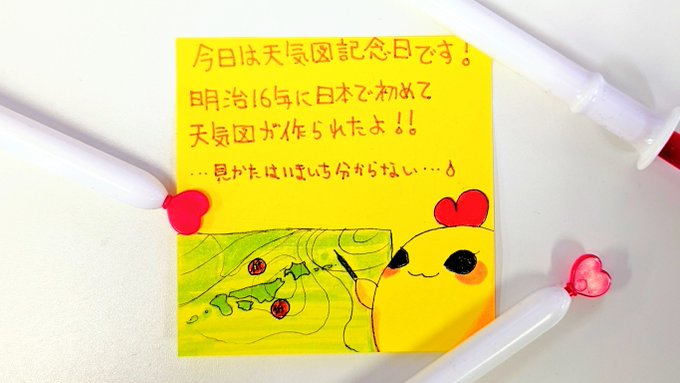 今日は天気図記念日です!
明治16年に日本で初めて
天気図が作られたよ!!
…見かたはいまいち分からない…